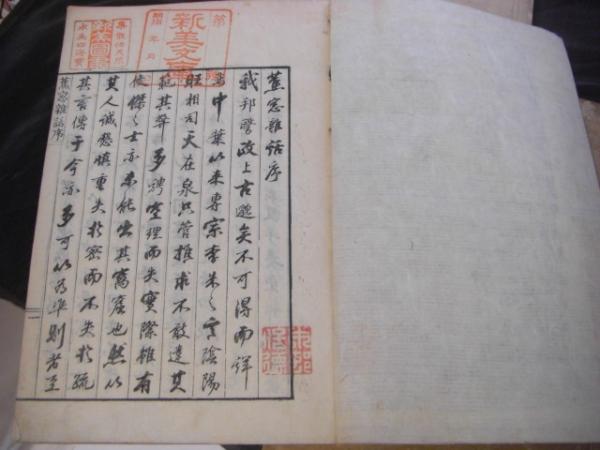 蕉窓雜話序
我邦醫政上古邈矣不可得而詳
中葉以來專宗李朱之言陰陽
旺相司天在泉只管推求不敢達其
範其弊多騁空理而失實際雖有
俊傑之士亦未能出其窩窟也然以
其人誠愨慎重失於密而不失於疏
其言傳于今亦多可以為準則者至
蕉窓雜話序
新美文庫